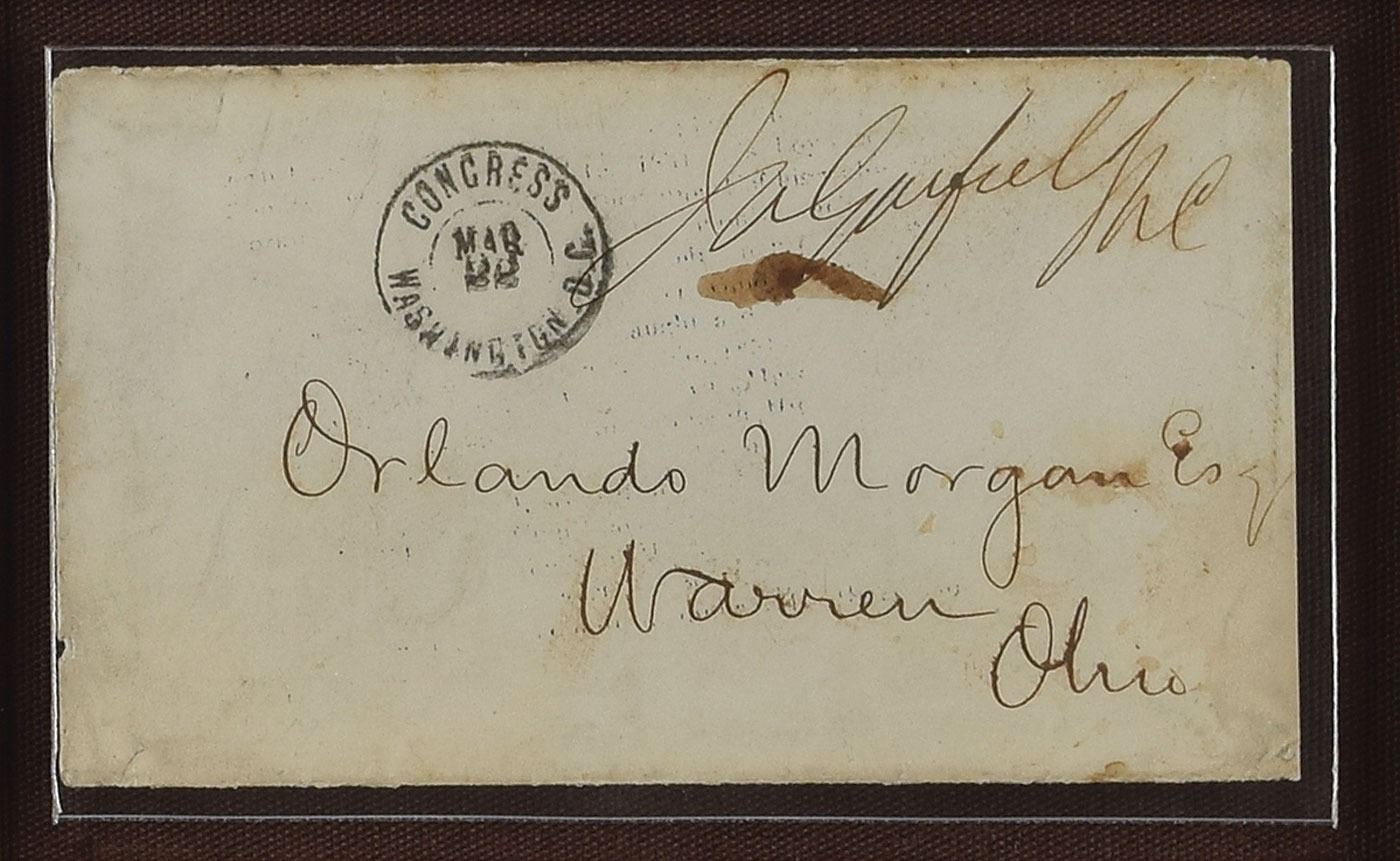 CONGRESS
MAR
22
WASHINGTON D.C.
JA Garfield MC
Orlando Morgan Esq
Warren
Ohio